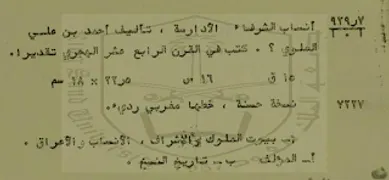 ٩٢٩٫٧ أنساب الشرفاء الأدارسة ، تأليف أحمد بن علي
؟ . كتب في القرن الرابع عشر الهجري تقديرا.
١٥ ق ١٦ س ٢٢٫٥ × ١٨ سم
٧٢٢٧ نسخة حسنة ، خطها مغربي ردي .
١- بيوت الملوك والإشراف ، الأنساب والأعراق .
أ- المؤلف ب- تاريخ النسخ .